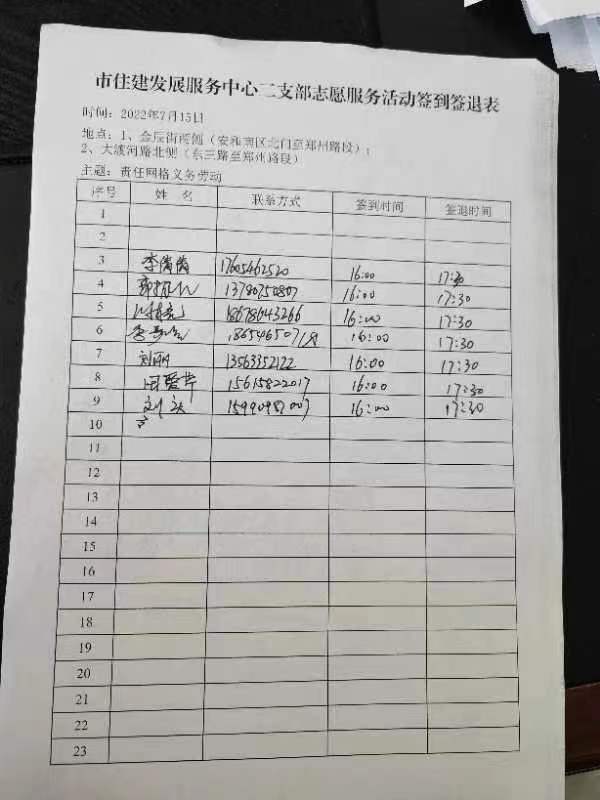 市住建发展服务中心二支部志愿服务活动签到签退表
时间：2022年7月15日
地点：1、金辰街两侧（安和南区北门至郑州路段）；
2、大渡河路北侧（东三路至郑州路段）
主题：责任网格义务劳动
序号 姓 名 联系方式 签到时间 签退时间
1
2
3 李倩倩 17605462520 16:00 17:30
4 13780750807 16:00 17:30
5 18678643266 16:00 17:30
6 16:00 17:30
7 刘丽 13563352122 16:00 17:30
8 周爱芹 15615822017 16:00 17:30
9 刘 16:00 17:30
10
11
12
13
14
15
16
17
18
19
20
21
22
23